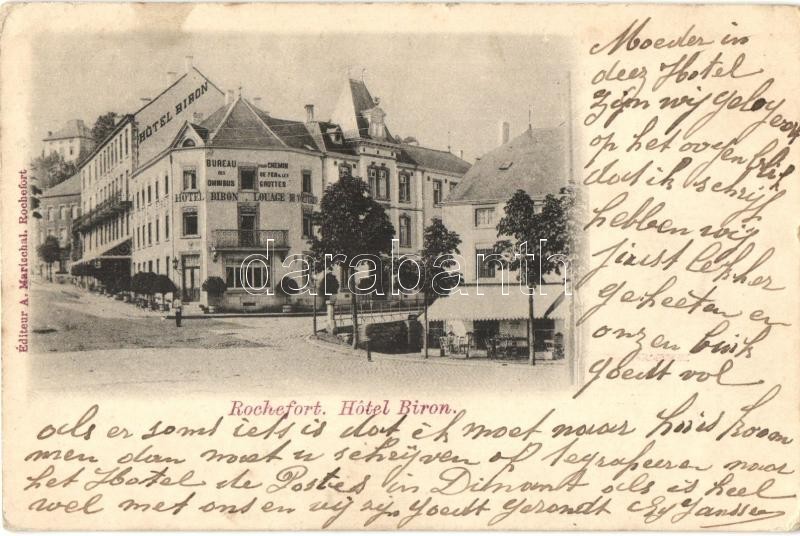 Moeder in
deez Hotel
Zijn wij geloygeerd
op het oogenblik
dat ik schrijf
hebben wij
juist lekker
gegeeten en
onzen buik
goedt vol
als er soms iets is dat ik moet naar huis koom
men dan moet u schrijven of tegrapeeren naar
het Hotel de Postes in Dinant als is heel
wel met ons en vij zyn goedt gezondt Jansse
HÔTEL BIRON
BUREAU DES OMNIBUS
POUR CHEMIN DE FER & LES GROTTES
HÔTEL BIRON . LOUAGE DE VOITURES
darabanth
Éditeur A. Marischal, Rochefort
Rochefort. Hôtel Biron.